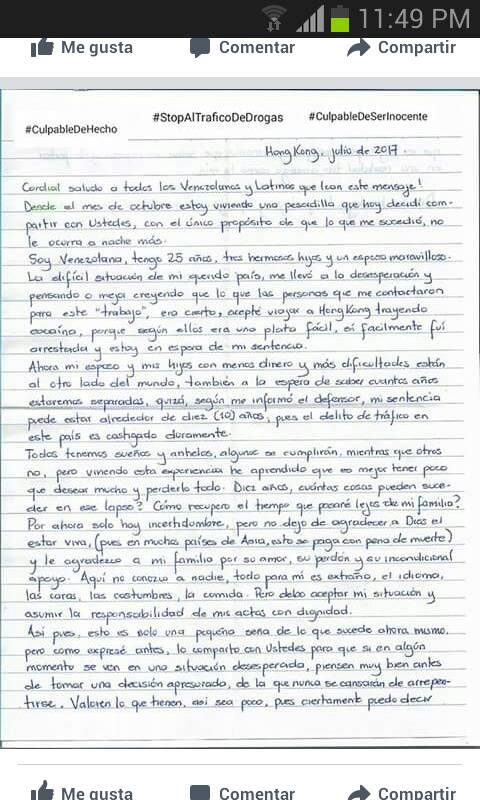 11:49 PM
Me gusta Comentar Compartir
#CulpableDeHecho #StopAlTraficoDeDrogas #CulpableDeSerInocente
Hong Kong, julio de 2017
Cordial saludo a todos los Venezolanos y Latinos que lean este mensaje!
Desde el mes de octubre estoy viviendo una pesadilla que hoy decidí com-
partir con Ustedes, con el único propósito de que lo que me sucedió, no
le ocurra a nadie más.
Soy Venezolana, tengo 25 años, tres hermosos hijos y un esposo maravilloso.
La difícil situación de mi querido país, me llevó a la desesperación y
pensando o mejor creyendo que lo que las personas que me contactaron
para este "trabajo", era cierto, acepté viajar a Hong Kong trayendo
cocaína, porque según ellos era una plata fácil, así facilmente fuí
arrestada y estoy en espera de mi sentencia.
Ahora mi esposo y mis hijos con menos dinero y más dificultades están
al otro lado del mundo, también a la espera de saber cuantos años
estaremos separados, quizá, según me informó el defensor, mi sentencia
puede estar alrededor de diez (10) años, pues el delito de tráfico en
este país es castigado duramente.
Todos tenemos sueños y anhelos, algunos se cumplirán, mientras que otros
no, pero viviendo esta experiencia he aprendido que es mejor tener poco
que desear mucho y perderlo todo. Diez años, cuántas cosas pueden suce-
der en ese lapso? Cómo recupero el tiempo que pasaré lejos de mi familia?
Por ahora solo hay incertidumbre, pero no dejo de agradecer a Dios el
estar viva, (pues en muchos países de Asia, esto se paga con pena de muerte)
y le agradezco a mi familia por su amor, su perdón y su incondicional
apoyo. Aquí no conozco a nadie, todo para mi es extraño, el idioma,
las caras, las costumbres, la comida. Pero debo aceptar mi situación y
asumir la responsabilidad de mis actos con dignidad.
Así pues, esto es solo una pequeña seña de lo que sucede ahora mismo,
pero como expresé antes, lo comparto con Ustedes para que si en algún
momento se ven en una situación desesperada, piensen muy bien antes
de tomar una decisión apresurada, de la que nunca se cansarán de arrepen-
tirse. Valoren lo que tienen, así sea poco, pues ciertamente puedo decir
Me gusta Comentar Compartir